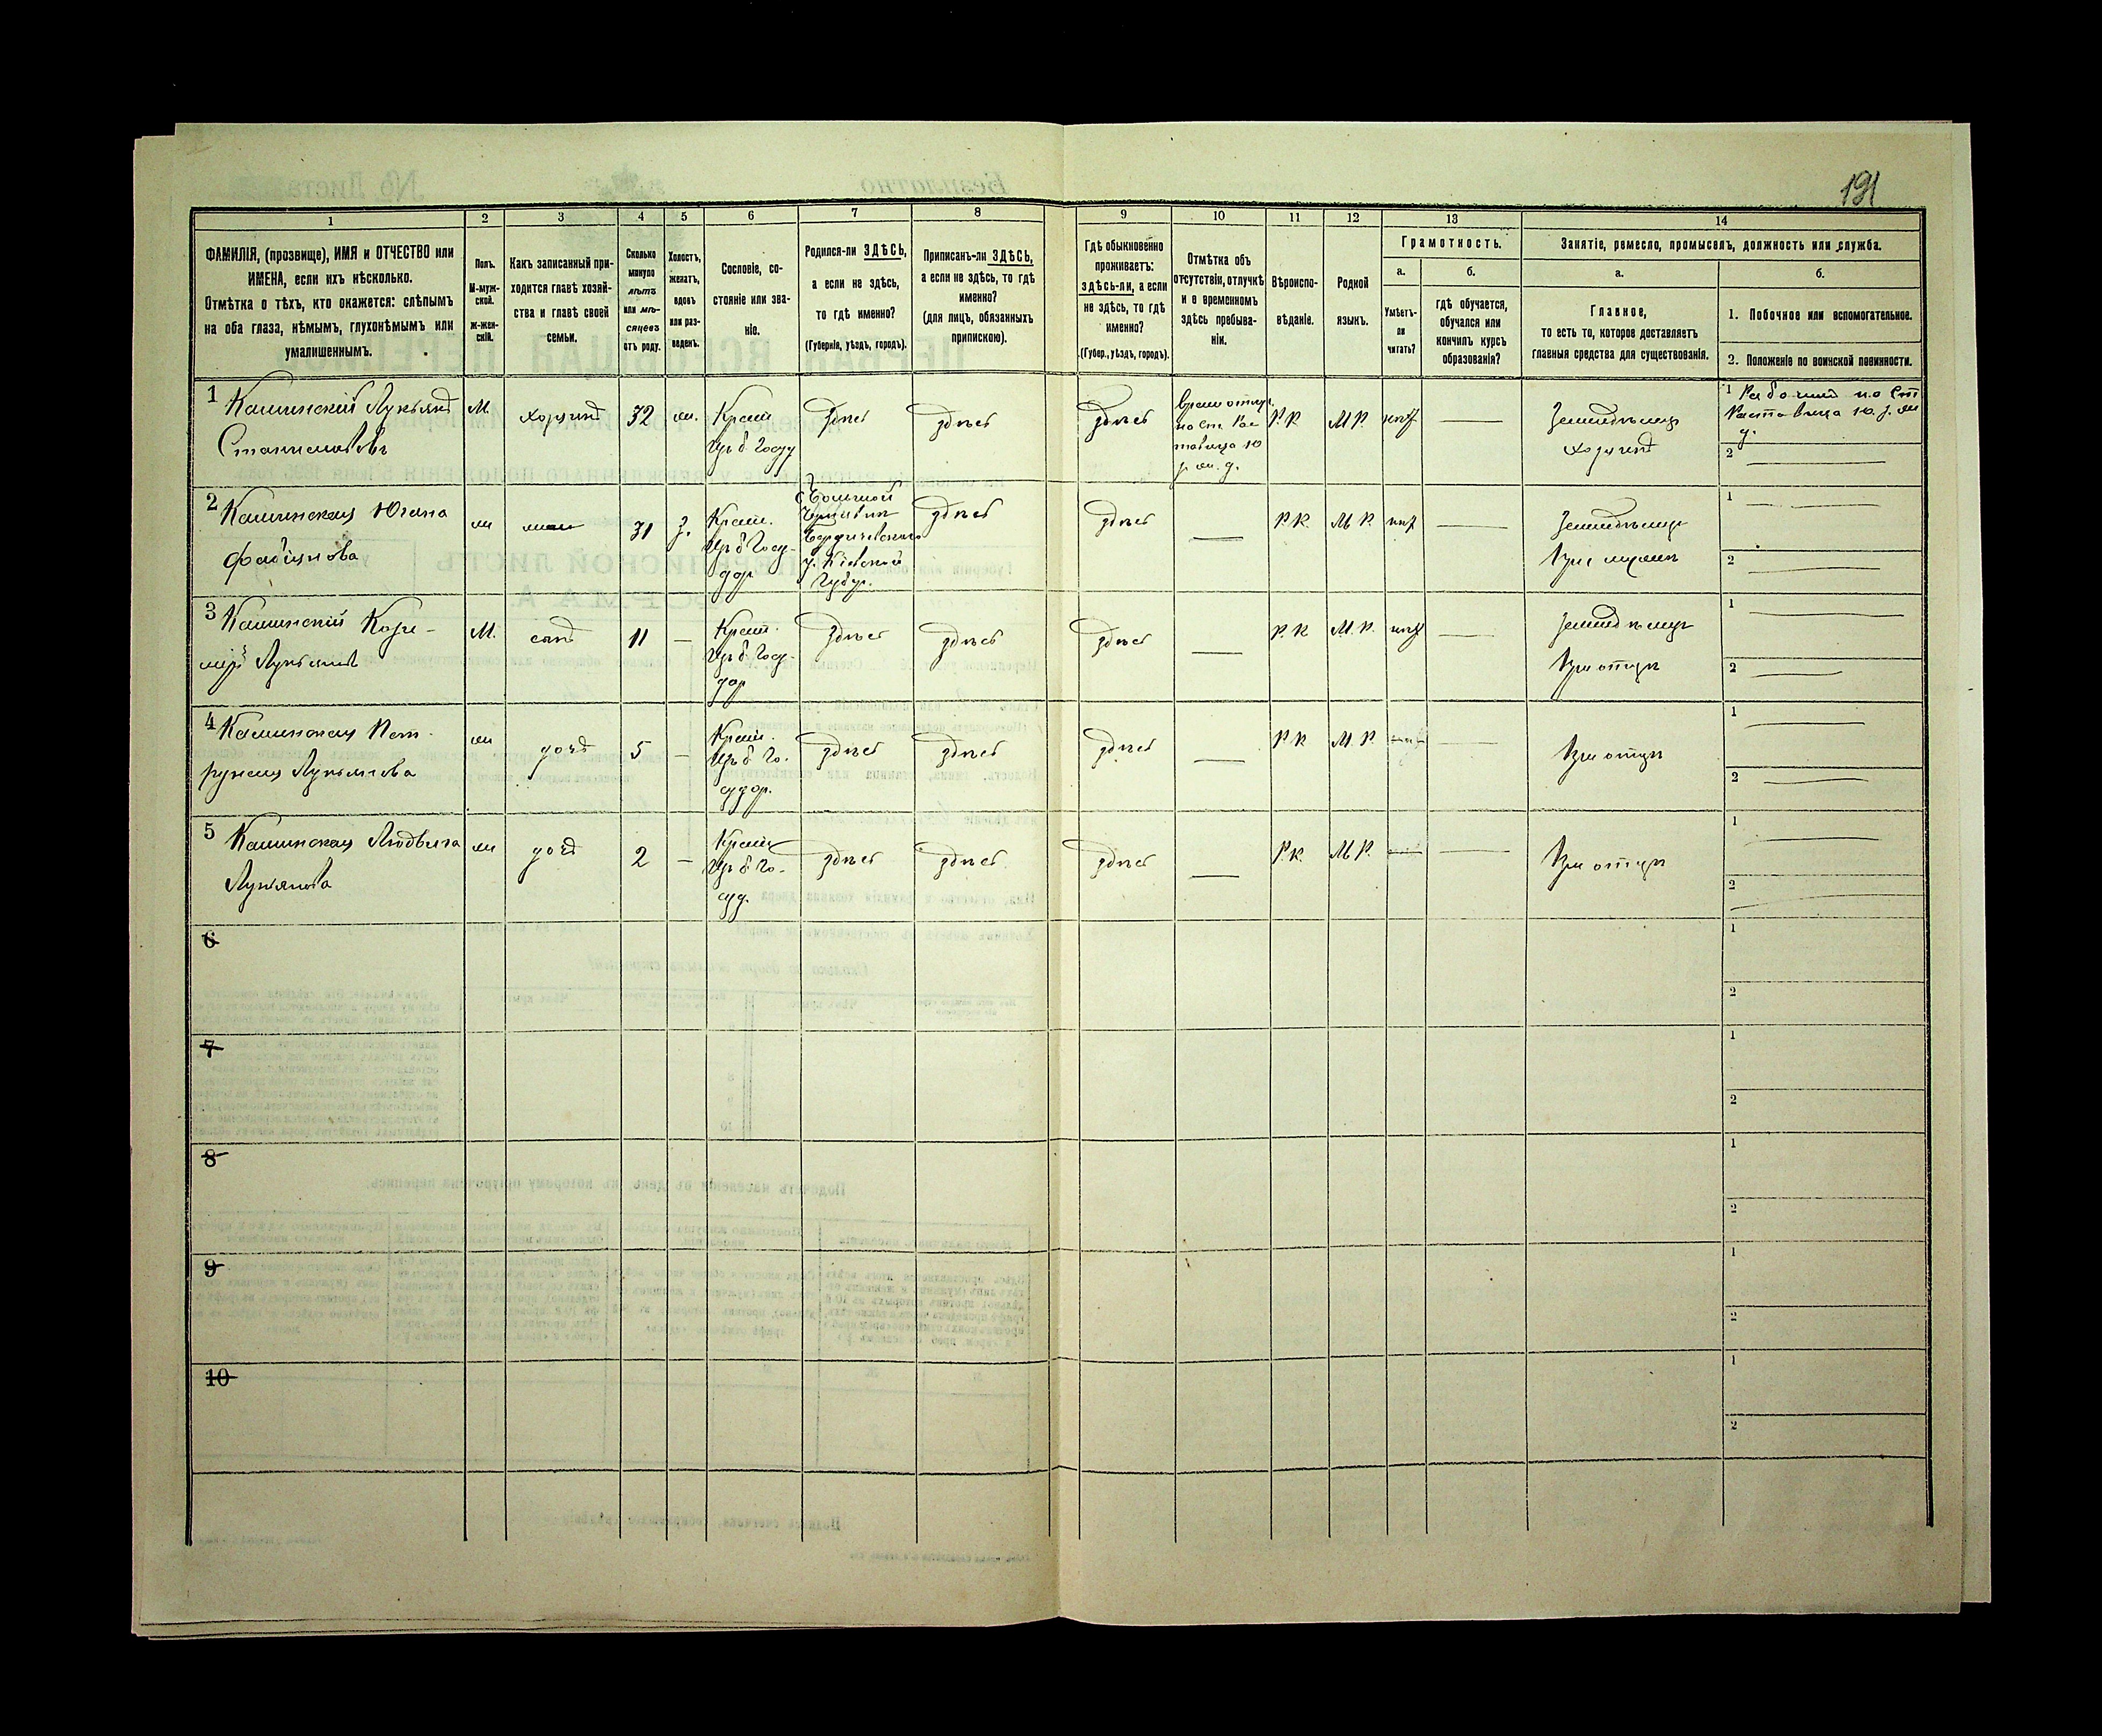 191
1
2
3
4
5
6
7
8
9
10
11
12
13
14
ФАМИЛІЯ, (прозвище), ИМЯ и ОТЧЕСТВО или
ИМЕНА, если ихъ нѣсколько.
Отмѣтка о тѣхъ, кто окажется: слѣпымъ
на оба глаза, нѣмымъ, глухонѣмымъ или
умалишеннымъ.
Полъ.
М-муж-
ской.
ж-жен-
скій.
Какъ записанный при-
ходится главѣ хозяй-
ства и главѣ своей
семьи.
Сколько
минуло
лѣтъ
или мѣ-
сяцевъ
отъ роду.
Холостъ,
женатъ,
вдовъ
или раз-
веденъ.
Сословіе, со-
стояніе или зва-
ніе.
Родился-ли ЗДѢСЬ,
а если не здѣсь,
то гдѣ именно?
(Губернія, уѣздъ, городъ).
Приписанъ-ли ЗДѢСЬ,
а если не здѣсь, то гдѣ
именно?
(для лицъ, обязанныхъ
припискою).
Гдѣ обыкновенно
проживаетъ:
здѣсь-ли, а если
не здѣсь, то гдѣ
именно?
(Губер., уѣздъ, городъ).
Отмѣтка объ
отсутствіи, отлучкѣ
и о временномъ
здѣсь пребыва-
ніи.
Вѣроиспо-
вѣданіе.
Родной
языкъ.
Грамотность.
а.
б.
Умѣетъ-
ли
читать?
гдѣ обучается,
обучался или
кончилъ курсъ
образованія?
Занятіе, ремесло, промыселъ, должность или служба.
а.
б.
Главное,
то есть то, которое доставляетъ
главныя средства для существованія.
1. Побочное или вспомогательное.
2. Положеніе по воинской повинности.
1
Каминскій Лукьянъ
Станиславовъ
М.
хозяинъ
32
ж.
Крест.
Изъ б. Госуд
здѣсь
здѣсь
здѣсь
Р.К
М Р.
нѣт
Земледѣлецъ
хозяинъ
1 Рабочий на Ст
Растовица Ю. З. Ж
д.
2
2
Каминская Юзана
Фабіянова
ж
жена
31
З.
Крест.
Изъ б. Госу-
дар
Бердичевскаго
у. Кіевской
Губер.
здѣсь
здѣсь
Р.К.
М Р.
нѣт
Земледѣлецъ
При мужѣ
1
2
3
Каминскій Кази-
міръ Лукьяновъ
М.
сынъ
11
Крест.
Изъ б. Госу-
дар
здѣсь
здѣсь
здѣсь
Р.К
М. Р.
нѣт
Земледѣлецъ
При отцѣ
1
2
4
Каминская Пет-
рунеля Лукьянова
ж
дочь
5
Крест.
Изъ б. Го-
судар.
здѣсь
здѣсь
здѣсь
Р.К
М. Р.
При отцѣ
1
2
5
Каминская Людвига
Лукьянова
ж
дочь
2
Крест
Изъ б. Го-
суд.
здѣсь
здѣсь
здѣсь
Р.К.
М Р.
При отцѣ
1
2
6
1
2
7
1
2
8
1
2
9
1
2
10
1
2